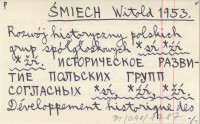 P
ŚMIECH Witold 1953.
Rozwój historyczny polskich
grup spółgłoskowych *śŕ *źŕ
*žŕ. ИСТОРИЧЕСКОЕ РАЗВИ-
ТИЕ ПОЛЬСКИХ ГРУПП
СОГЛАСНЫХ *śŕ *źŕ *žŕ.
Développement historique des